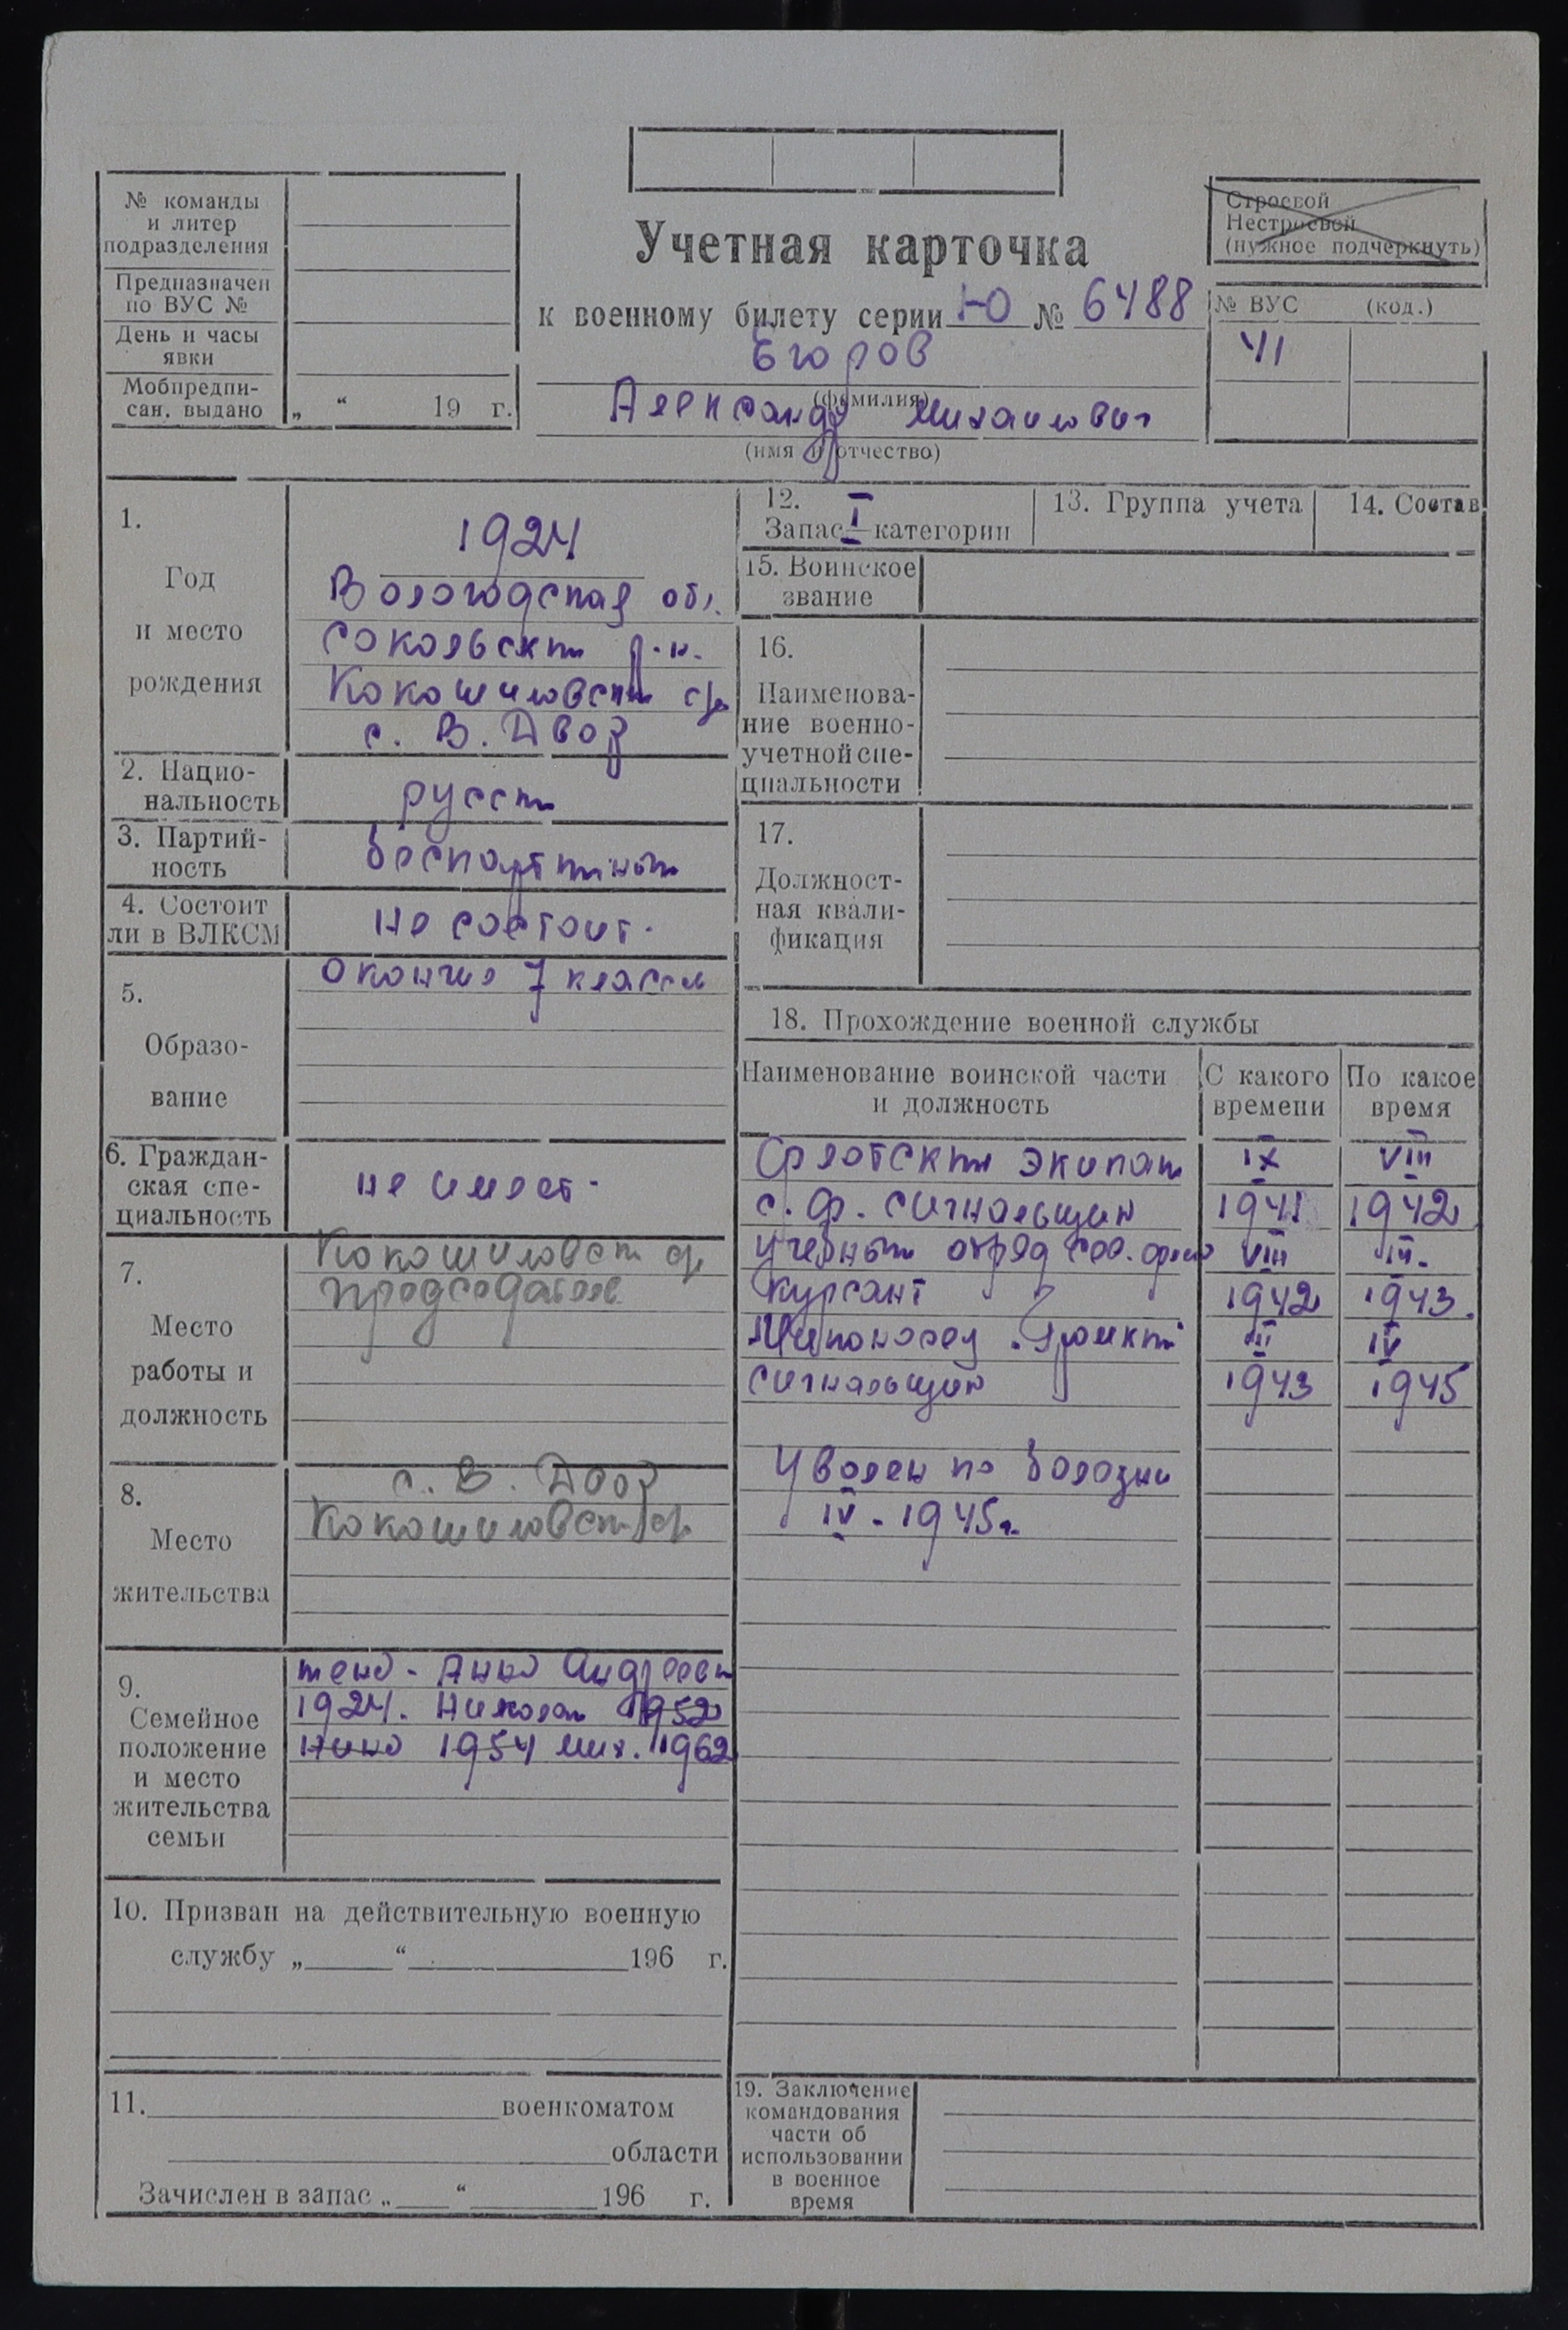 № команды
и литер
подразделения
Предназначен
по ВУС №
День и часы
явки
Мобпредпи-
сан. выдано
„ “ 19 г.
Учетная карточка
к военному билету серии Ю № 6488
Егоров
(фамилия)
Александр Михаилович
(имя и отчество)
Строевой
Нестроевой
(нужное подчеркнуть)
№ ВУС (код.)
41
1.
Год
и место
рождения
1924
Вологодская обл.
Сокольский р-н.
Кокошиловский с/с
с. В. Двор
2. Нацио-
нальность
русский
3. Партий-
ность
беспартийный
4. Состоит
ли в ВЛКСМ
не состоит.
5.
Образо-
вание
окончил 7 классов
6. Граждан-
ская спе-
циальность
не имеет.
7.
Место
работы и
должность
Кокошиловский с/с
председатель
8.
Место
жительства
с. В. Двор
Кокошиловский с/с
9.
Семейное
положение
и место
жительства
семьи
жена - Анна Андреевн
1924. Николай 1952
Нина 1954 Мих. 1962
10. Призван на действительную военную
службу „ “ 196 г.
11. военкоматом
области
Зачислен в запас „ “ 196 г.
12.
Запас I категории
13. Группа учета
14. Состав
15. Воинское
звание
16.
Наименова-
ние военно-
учетной спе-
циальности
17.
Должност-
ная квали-
фикация
18. Прохождение военной службы
Наименование воинской части
и должность
С какого
времени
По какое
время
Флотский экипаж IX VIII
с. ф. сигнальщик 1941 1942
Учебный отряд сев. флота VIII III.
курсант 1942 1943.
Миноносец "Громкий" III IV
сигнальщик 1943 1945
Уволен по болезни
IV - 1945г.
19. Заключение
командования
части об
использовании
в военное
время